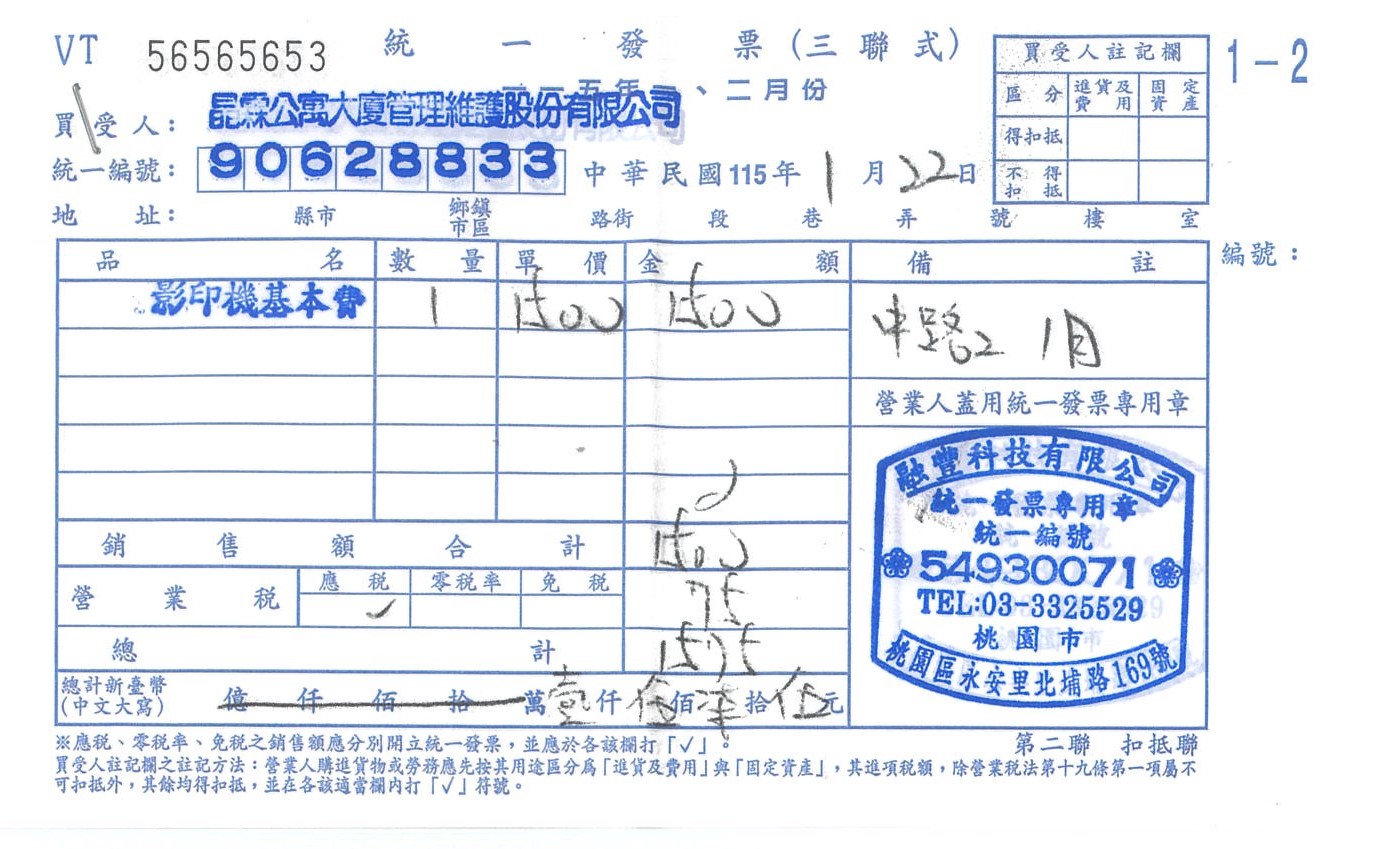 VT 56565653 統一發票(三聯式) 1-2
一一五年一、二月份
買受人: 晶霖公寓大廈管理維護股份有限公司
統一編號: 90628833 中華民國115年1月22日
地址: 縣市 鄉鎮市區 路街 段 巷 弄 號 樓 室
買受人註記欄
區分 進貨及費用 固定資產
得扣抵
不得扣抵
編號:
品名 數量 單價 金額 備註
影印機基本費 1 1500 1500 中路2 1月
營業人蓋用統一發票專用章
銷售額合計 1500
營業稅 應稅 ✓ 零稅率 免稅 75
總計 1575
總計新臺幣(中文大寫) 億仟佰拾萬壹仟伍佰柒拾伍元
融豐科技有限公司
統一發票專用章
統一編號
54930071
TEL:03-3325529
桃園市
桃園區永安里北埔路169號
※應稅、零稅率、免稅之銷售額應分別開立統一發票,並應於各該欄打「✓」。
第二聯 扣抵聯
買受人註記欄之註記方法:營業人購進貨物或勞務應先按其用途區分為「進貨及費用」與「固定資產」,其進項稅額,除營業稅法第十九條第一項屬不
可扣抵外,其餘均得扣抵,並在各該適當欄內打「✓」符號。